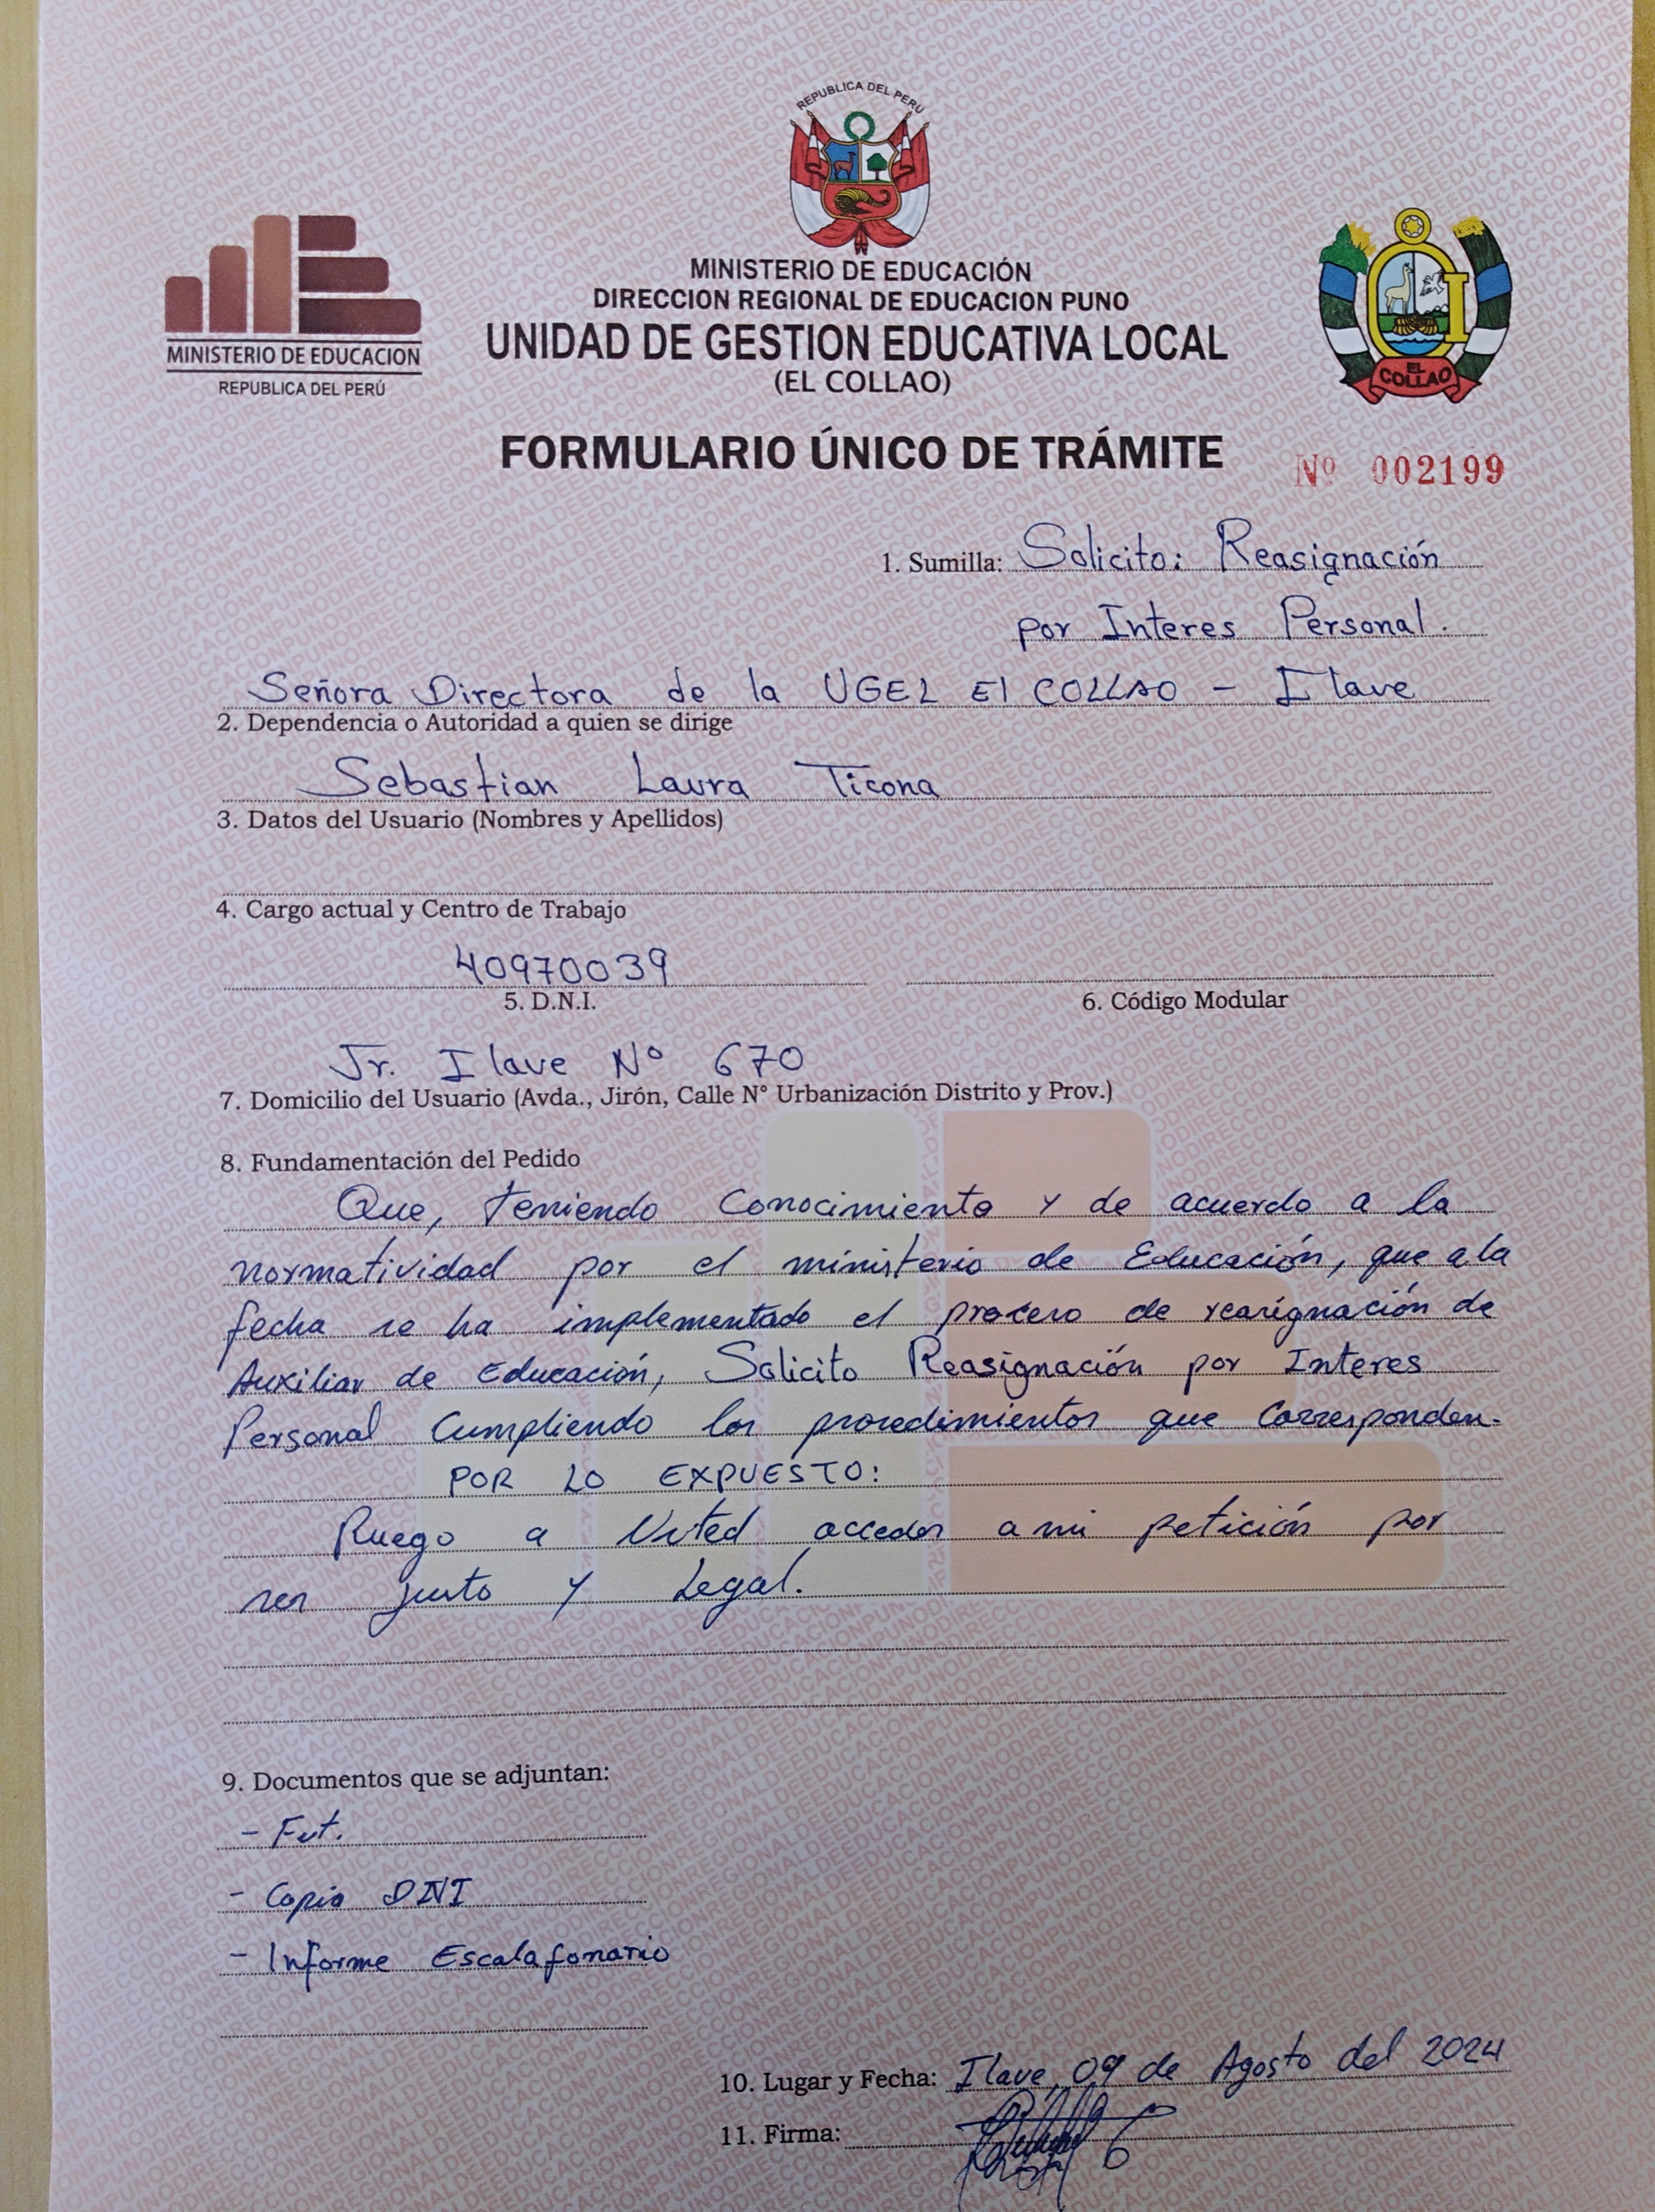 REPUBLICA DEL PERÚ
MINISTERIO DE EDUCACIÓN
DIRECCION REGIONAL DE EDUCACION PUNO
UNIDAD DE GESTION EDUCATIVA LOCAL
(EL COLLAO)
MINISTERIO DE EDUCACION
REPUBLICA DEL PERÚ
EL COLLAO
FORMULARIO ÚNICO DE TRÁMITE
Nº 002199
1. Sumilla: Solicito: Reasignación
por Interes Personal.
Señora Directora de la UGEL El COLLAO - Ilave
2. Dependencia o Autoridad a quien se dirige
Sebastian Laura Ticona
3. Datos del Usuario (Nombres y Apellidos)
4. Cargo actual y Centro de Trabajo
40970039
5. D.N.I. 6. Código Modular
Jr. Ilave Nº 670
7. Domicilio del Usuario (Avda., Jirón, Calle N° Urbanización Distrito y Prov.)
8. Fundamentación del Pedido
Que, teniendo Conocimiento y de acuerdo a la
normatividad por el ministerio de Educación, que a la
fecha se ha implementado el proceso de reasignación de
Auxiliar de Educación, Solicito Reasignación por Interes
Personal Cumpliendo los procedimientos que Corresponden.
POR LO EXPUESTO:
Ruego a Usted acceder a mi petición por
ser justo y Legal.
9. Documentos que se adjuntan:
- Fut.
- Copia DNI
- Informe Escalafonario
10. Lugar y Fecha: Ilave, 09 de Agosto del 2024
11. Firma: